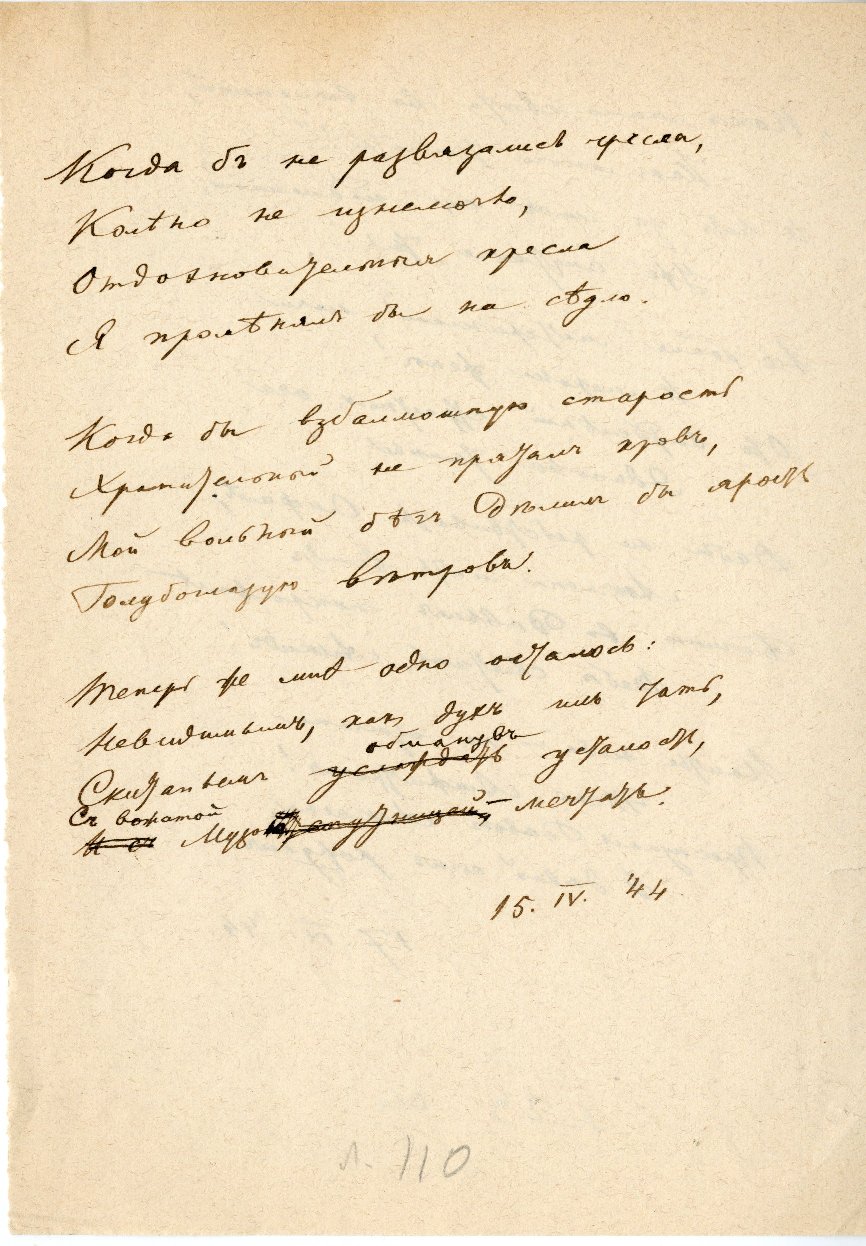 Когда бъ не развязались чресла,
Колѣно не изнемогло,
Отдохновительныя кресла
Я промѣнялъ бы на сѣдло.
Когда бы взбалмошную старость
Хранительный не пряталъ кровъ,
Мой вольный бѣгъ дѣлилъ бы ярость
Голубоглазую вѣтровъ.
Теперь же мнѣ одно осталось:
Невидимымъ, какъ духъ иль тать,
Скитаньемъ услаждать усталость,
обманувъ
Съ вожатой
И съ Музой спутницей – мечтать.
15. IV. '44
л. 110